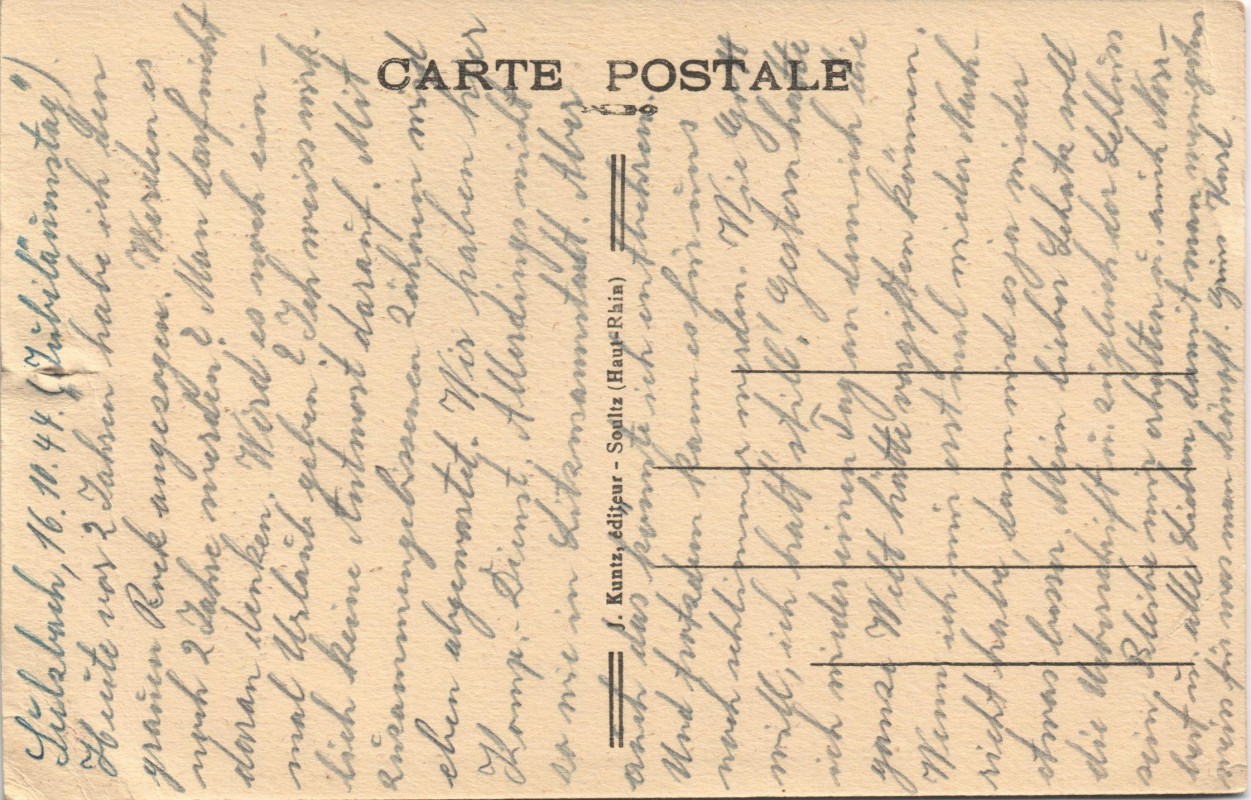 CARTE POSTALE
J. Kuntz, éditeur - Soultz (Haut-Rhin)
Sulzbach, 16.10.44. (Jubiläumstag!)
Heute vor 2 Jahren habe ich den
grauen Rock angezogen. Werden es
noch 2 Jahre werden? Man darf nicht
daran denken. Wird es noch ein-
mal Urlaub geben? Ich weiss wirk-
lich keine Antwort darauf. Mit
zusammengebissenen Zähnen wird
eben abgewartet. Wir haben hier
Komp.-Dienst. Allerdings nicht
so wie in Litzmannstadt. Aber
auch das könnte ich entbehren.
Und trotzdem kann es für uns
noch schlimmer werden. Wie Gott
will, ich halt' still! Gestern hatte
ich wieder einen Tag an dem ich die
ganze Welt hätte vergiften können.
Wenn ich mir erst mal wieder Nach-
richt habe, dann wird es ja wieder
etwas besser. Mein lieber Schatz und
die Unterschrift u. zugleich der Schluss
sein. Bleibe mir erhalten u. auch
hat u. alle Lieben, damit man wenigstens
weiss für was man kämpft. Dein Karl.